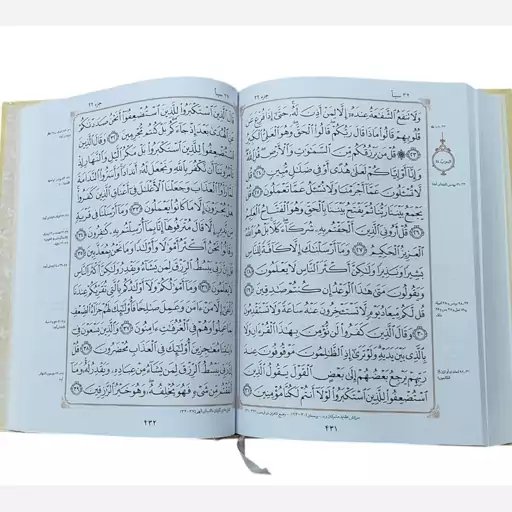 ٣٤ سبأ
جزء ٢٢
وَلَا تَنفَعُ الشَّفَاعَةُ عِندَهُ إِلَّا لِمَنْ أَذِنَ لَهُ حَتَّىٰ إِذَا فُزِّعَ عَن
قُلُوبِهِمْ قَالُوا مَاذَا قَالَ رَبُّكُمْ قَالُوا الْحَقَّ وَهُوَ الْعَلِيُّ الْكَبِيرُ
﴿٢٣﴾ قُلْ مَن يَرْزُقُكُم مِّنَ السَّمَاوَاتِ وَالْأَرْضِ قُلِ اللَّهُ
وَإِنَّا أَوْ إِيَّاكُمْ لَعَلَىٰ هُدًى أَوْ فِي ضَلَالٍ مُّبِينٍ ﴿٢٤﴾ قُل
لَّا تُسْأَلُونَ عَمَّا أَجْرَمْنَا وَلَا نُسْأَلُ عَمَّا تَعْمَلُونَ ﴿٢٥﴾ قُلْ
يَجْمَعُ بَيْنَنَا رَبُّنَا ثُمَّ يَفْتَحُ بَيْنَنَا بِالْحَقِّ وَهُوَ الْفَتَّاحُ الْعَلِيمُ
﴿٢٦﴾ قُلْ أَرُونِيَ الَّذِينَ أَلْحَقْتُم بِهِ شُرَكَاءَ كَلَّا بَلْ هُوَ اللَّهُ
الْعَزِيزُ الْحَكِيمُ ﴿٢٧﴾ وَمَا أَرْسَلْنَاكَ إِلَّا كَافَّةً لِّلنَّاسِ
بَشِيرًا وَنَذِيرًا وَلَٰكِنَّ أَكْثَرَ النَّاسِ لَا يَعْلَمُونَ ﴿٢٨﴾
وَيَقُولُونَ مَتَىٰ هَٰذَا الْوَعْدُ إِن كُنتُمْ صَادِقِينَ ﴿٢٩﴾
قُل لَّكُم مِّيعَادُ يَوْمٍ لَّا تَسْتَأْخِرُونَ عَنْهُ سَاعَةً وَلَا تَسْتَقْدِمُونَ
﴿٣٠﴾ وَقَالَ الَّذِينَ كَفَرُوا لَن نُّؤْمِنَ بِهَٰذَا الْقُرْآنِ وَلَا
بِالَّذِي بَيْنَ يَدَيْهِ وَلَوْ تَرَىٰ إِذِ الظَّالِمُونَ مَوْقُوفُونَ عِندَ
رَبِّهِمْ يَرْجِعُ بَعْضُهُمْ إِلَىٰ بَعْضٍ الْقَوْلَ يَقُولُ الَّذِينَ
اسْتُضْعِفُوا لِلَّذِينَ اسْتَكْبَرُوا لَوْلَا أَنتُمْ لَكُنَّا مُؤْمِنِينَ ﴿٣١﴾
٤٣١
٣٤ سبأ
جزء ٢٢
قَالَ الَّذِينَ اسْتَكْبَرُوا لِلَّذِينَ اسْتُضْعِفُوا أَنَحْنُ صَدَدْنَاكُمْ
عَنِ الْهُدَىٰ بَعْدَ إِذْ جَاءَكُم بَلْ كُنتُم مُّجْرِمِينَ ﴿٣٢﴾ وَقَالَ الَّذِينَ
اسْتُضْعِفُوا لِلَّذِينَ اسْتَكْبَرُوا بَلْ مَكْرُ اللَّيْلِ وَالنَّهَارِ إِذْ
تَأْمُرُونَنَا أَن نَّكْفُرَ بِاللَّهِ وَنَجْعَلَ لَهُ أَندَادًا وَأَسَرُّوا النَّدَامَةَ لَمَّا
رَأَوُا الْعَذَابَ وَجَعَلْنَا الْأَغْلَالَ فِي أَعْنَاقِ الَّذِينَ كَفَرُوا
هَلْ يُجْزَوْنَ إِلَّا مَا كَانُوا يَعْمَلُونَ ﴿٣٣﴾ وَمَا أَرْسَلْنَا فِي قَرْيَةٍ
مِّن نَّذِيرٍ إِلَّا قَالَ مُتْرَفُوهَا إِنَّا بِمَا أُرْسِلْتُم بِهِ كَافِرُونَ ﴿٣٤﴾
وَقَالُوا نَحْنُ أَكْثَرُ أَمْوَالًا وَأَوْلَادًا وَمَا نَحْنُ بِمُعَذَّبِينَ ﴿٣٥﴾
قُلْ إِنَّ رَبِّي يَبْسُطُ الرِّزْقَ لِمَن يَشَاءُ وَيَقْدِرُ وَلَٰكِنَّ أَكْثَرَ النَّاسِ
لَا يَعْلَمُونَ ﴿٣٦﴾ وَمَا أَمْوَالُكُمْ وَلَا أَوْلَادُكُم بِالَّتِي تُقَرِّبُكُمْ عِندَنَا
زُلْفَىٰ إِلَّا مَنْ آمَنَ وَعَمِلَ صَالِحًا فَأُولَٰئِكَ لَهُمْ جَزَاءُ الضِّعْفِ
بِمَا عَمِلُوا وَهُمْ فِي الْغُرُفَاتِ آمِنُونَ ﴿٣٧﴾ وَالَّذِينَ يَسْعَوْنَ فِي
آيَاتِنَا مُعَاجِزِينَ أُولَٰئِكَ فِي الْعَذَابِ مُحْضَرُونَ ﴿٣٨﴾ قُلْ
إِنَّ رَبِّي يَبْسُطُ الرِّزْقَ لِمَن يَشَاءُ مِنْ عِبَادِهِ وَيَقْدِرُ لَهُ وَمَا
أَنفَقْتُم مِّن شَيْءٍ فَهُوَ يُخْلِفُهُ وَهُوَ خَيْرُ الرَّازِقِينَ ﴿٣٩﴾
٤٣٢